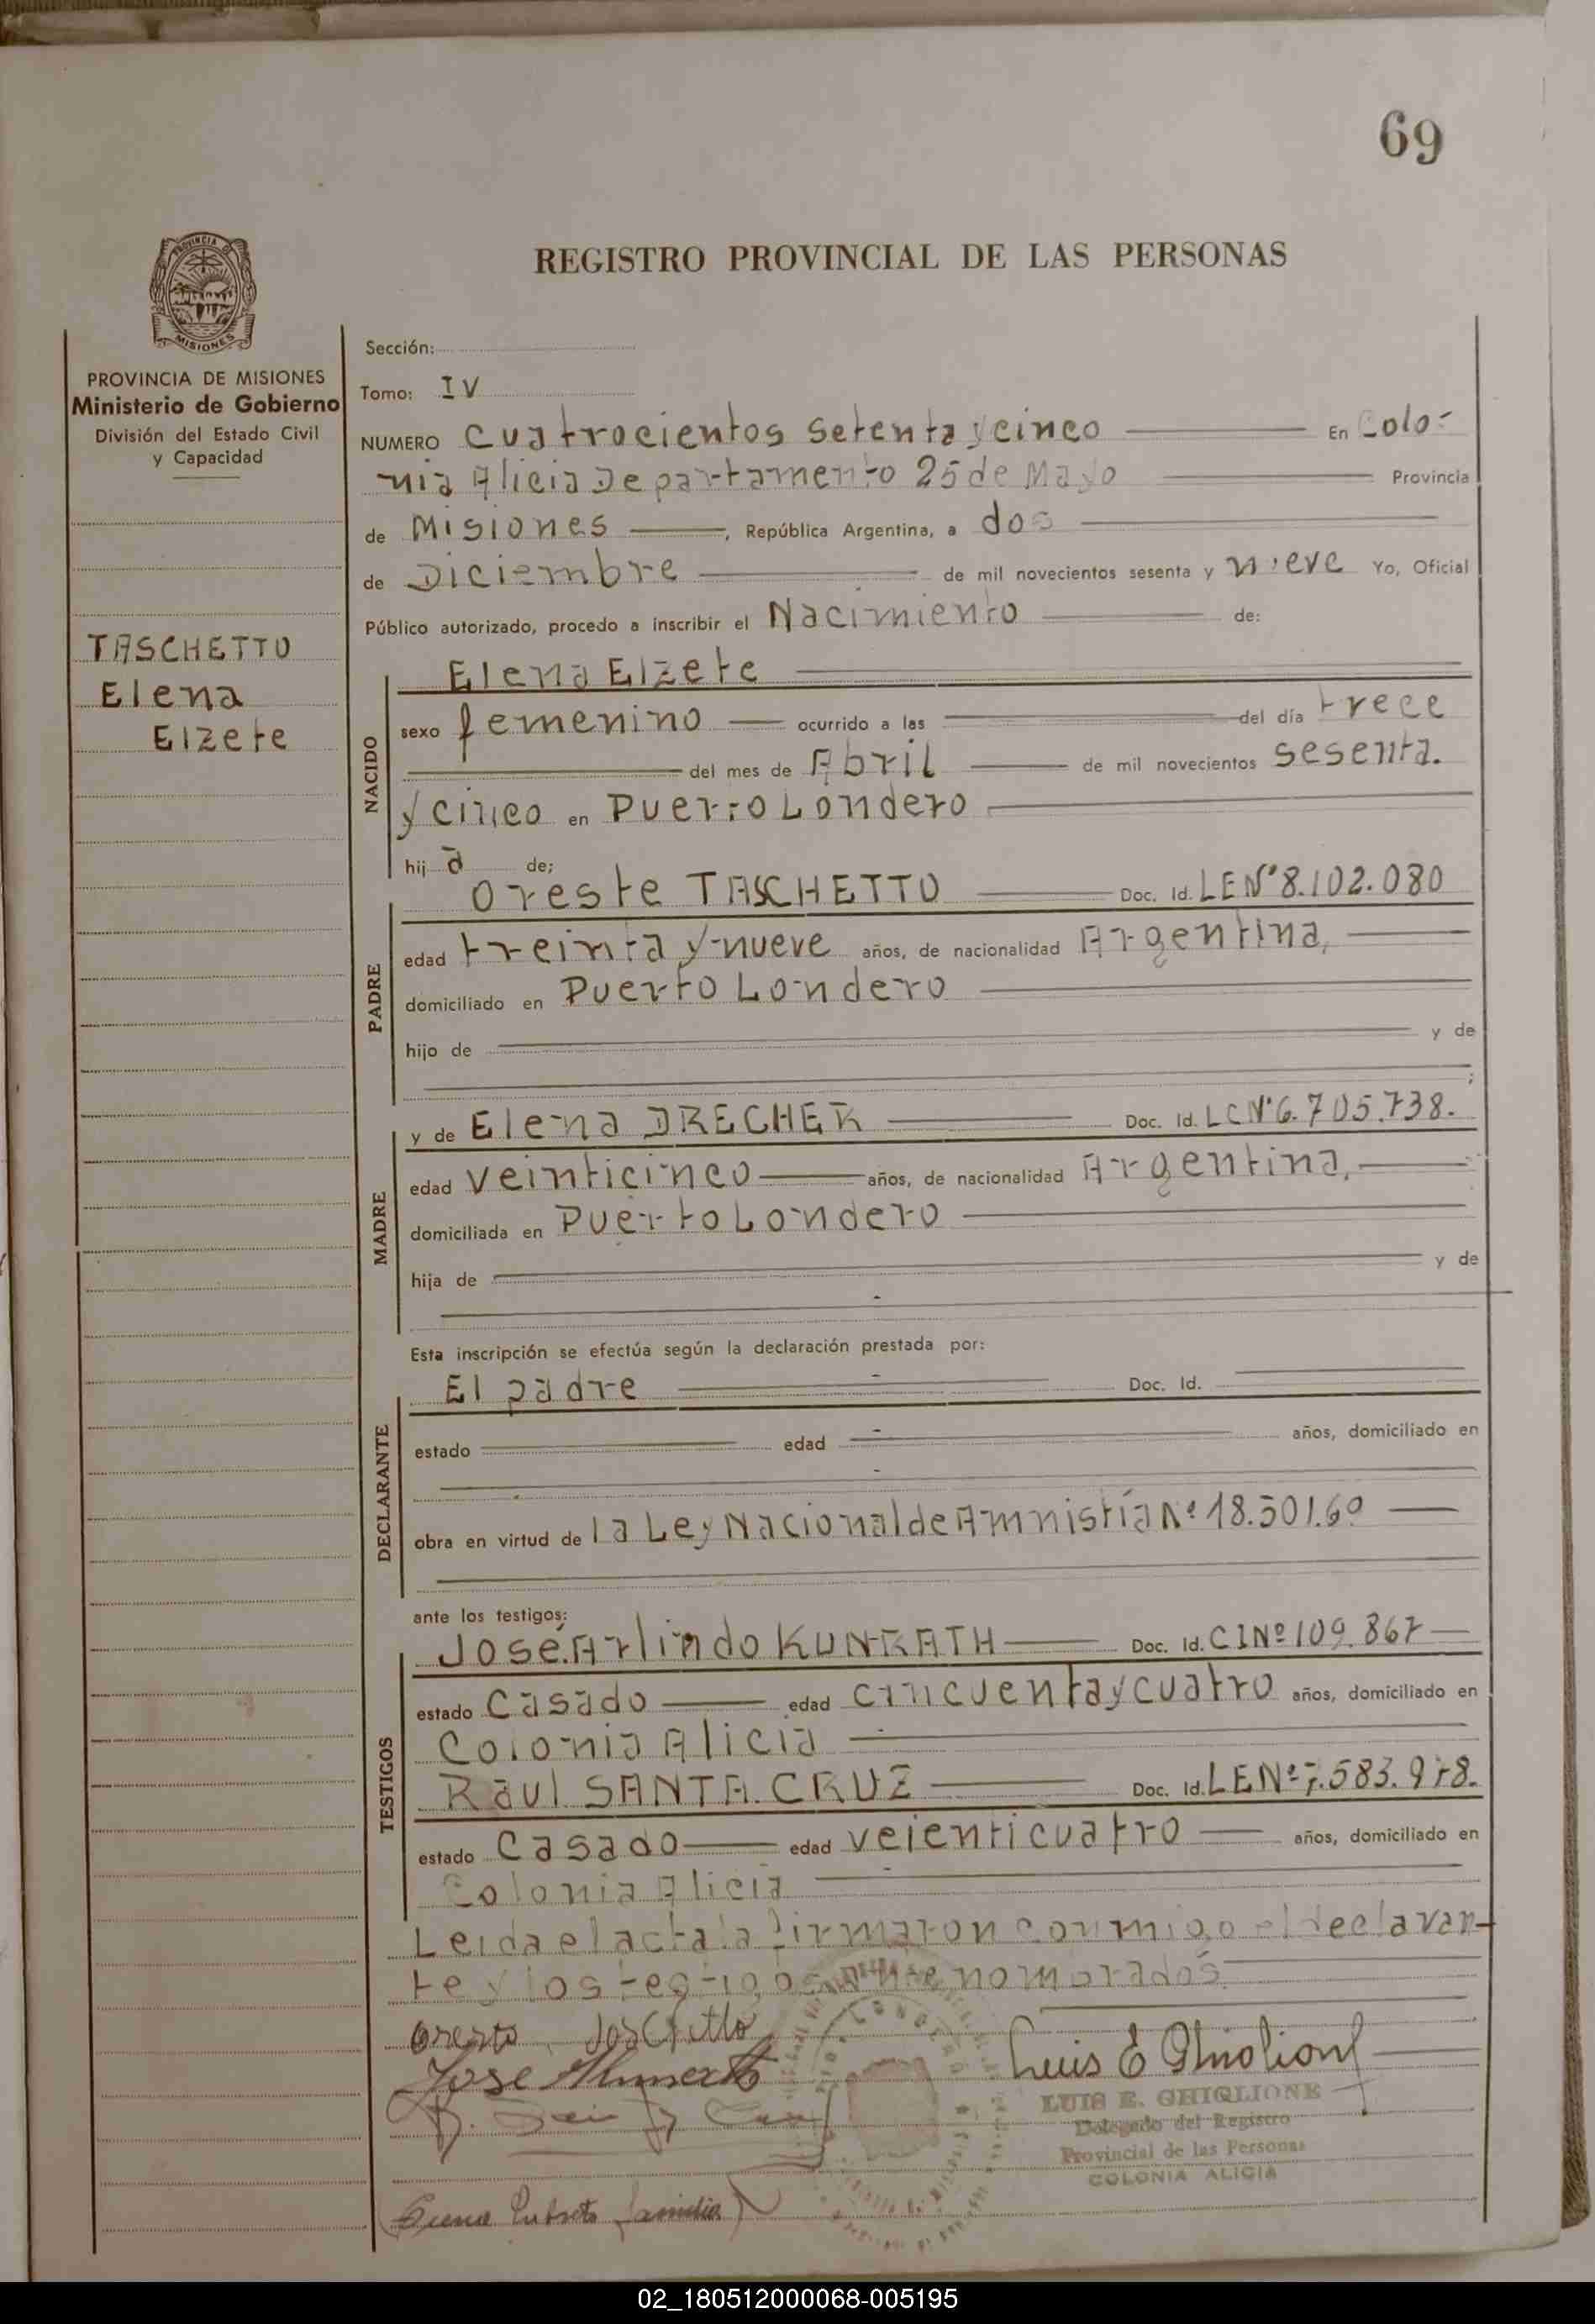 69
REGISTRO PROVINCIAL DE LAS PERSONAS
PROVINCIA DE MISIONES
Ministerio de Gobierno
División del Estado Civil
y Capacidad
TASCHETTO
Elena
Elzete
Sección:
Tomo: IV
NUMERO cuatrocientos setenta y cinco En Colo-
nia Alicia Departamento 25 de Mayo Provincia
de Misiones, República Argentina, a dos
de Diciembre de mil novecientos sesenta y nueve Yo, Oficial
Público autorizado, procedo a inscribir el Nacimiento de:
NACIDO
Elena Elzete
sexo femenino ocurrido a las del día trece
del mes de Abril de mil novecientos sesenta.
y cinco en Puerto Londero
hij a de;
PADRE
Oreste TASCHETTO Doc. Id. LE Nº 8.102.080
edad treinta y nueve años, de nacionalidad Argentina,
domiciliado en Puerto Londero
hijo de y de
;
MADRE
y de Elena DRECHER Doc. Id. LC Nº 6.705.738.
edad veinticinco años, de nacionalidad Argentina,
domiciliada en Puerto Londero
hija de y de
Esta inscripción se efectúa según la declaración prestada por:
DECLARANTE
El padre Doc. Id.
estado edad años, domiciliado en
obra en virtud de la Ley Nacional de Amnistía Nº 18.501.69
ante los testigos:
TESTIGOS
José Arlindo KUNRATH Doc. Id. CI Nº 109.867
estado Casado edad cincuenta y cuatro años, domiciliado en
Colonia Alicia
Raul SANTA CRUZ Doc. Id. LE Nº 7.583.978.
estado Casado edad veienticuatro años, domiciliado en
Colonia Alicia
Leida el acta la firmaron conmigo el declaran-
te y los testigos nombrados
Jose
Luis E Ghiglione
LUIS E. GHIGLIONE
Delegado del Registro
Provincial de las Personas
COLONIA ALICIA
02_180512000068-005195